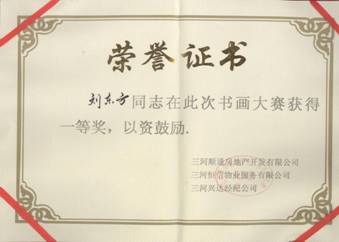 荣誉证书
刘东方同志在此次书画大赛获得
一等奖，以资鼓励.
三河顺通房地产开发有限公司
三河恒信物业服务有限公司
三河兴达经纪公司